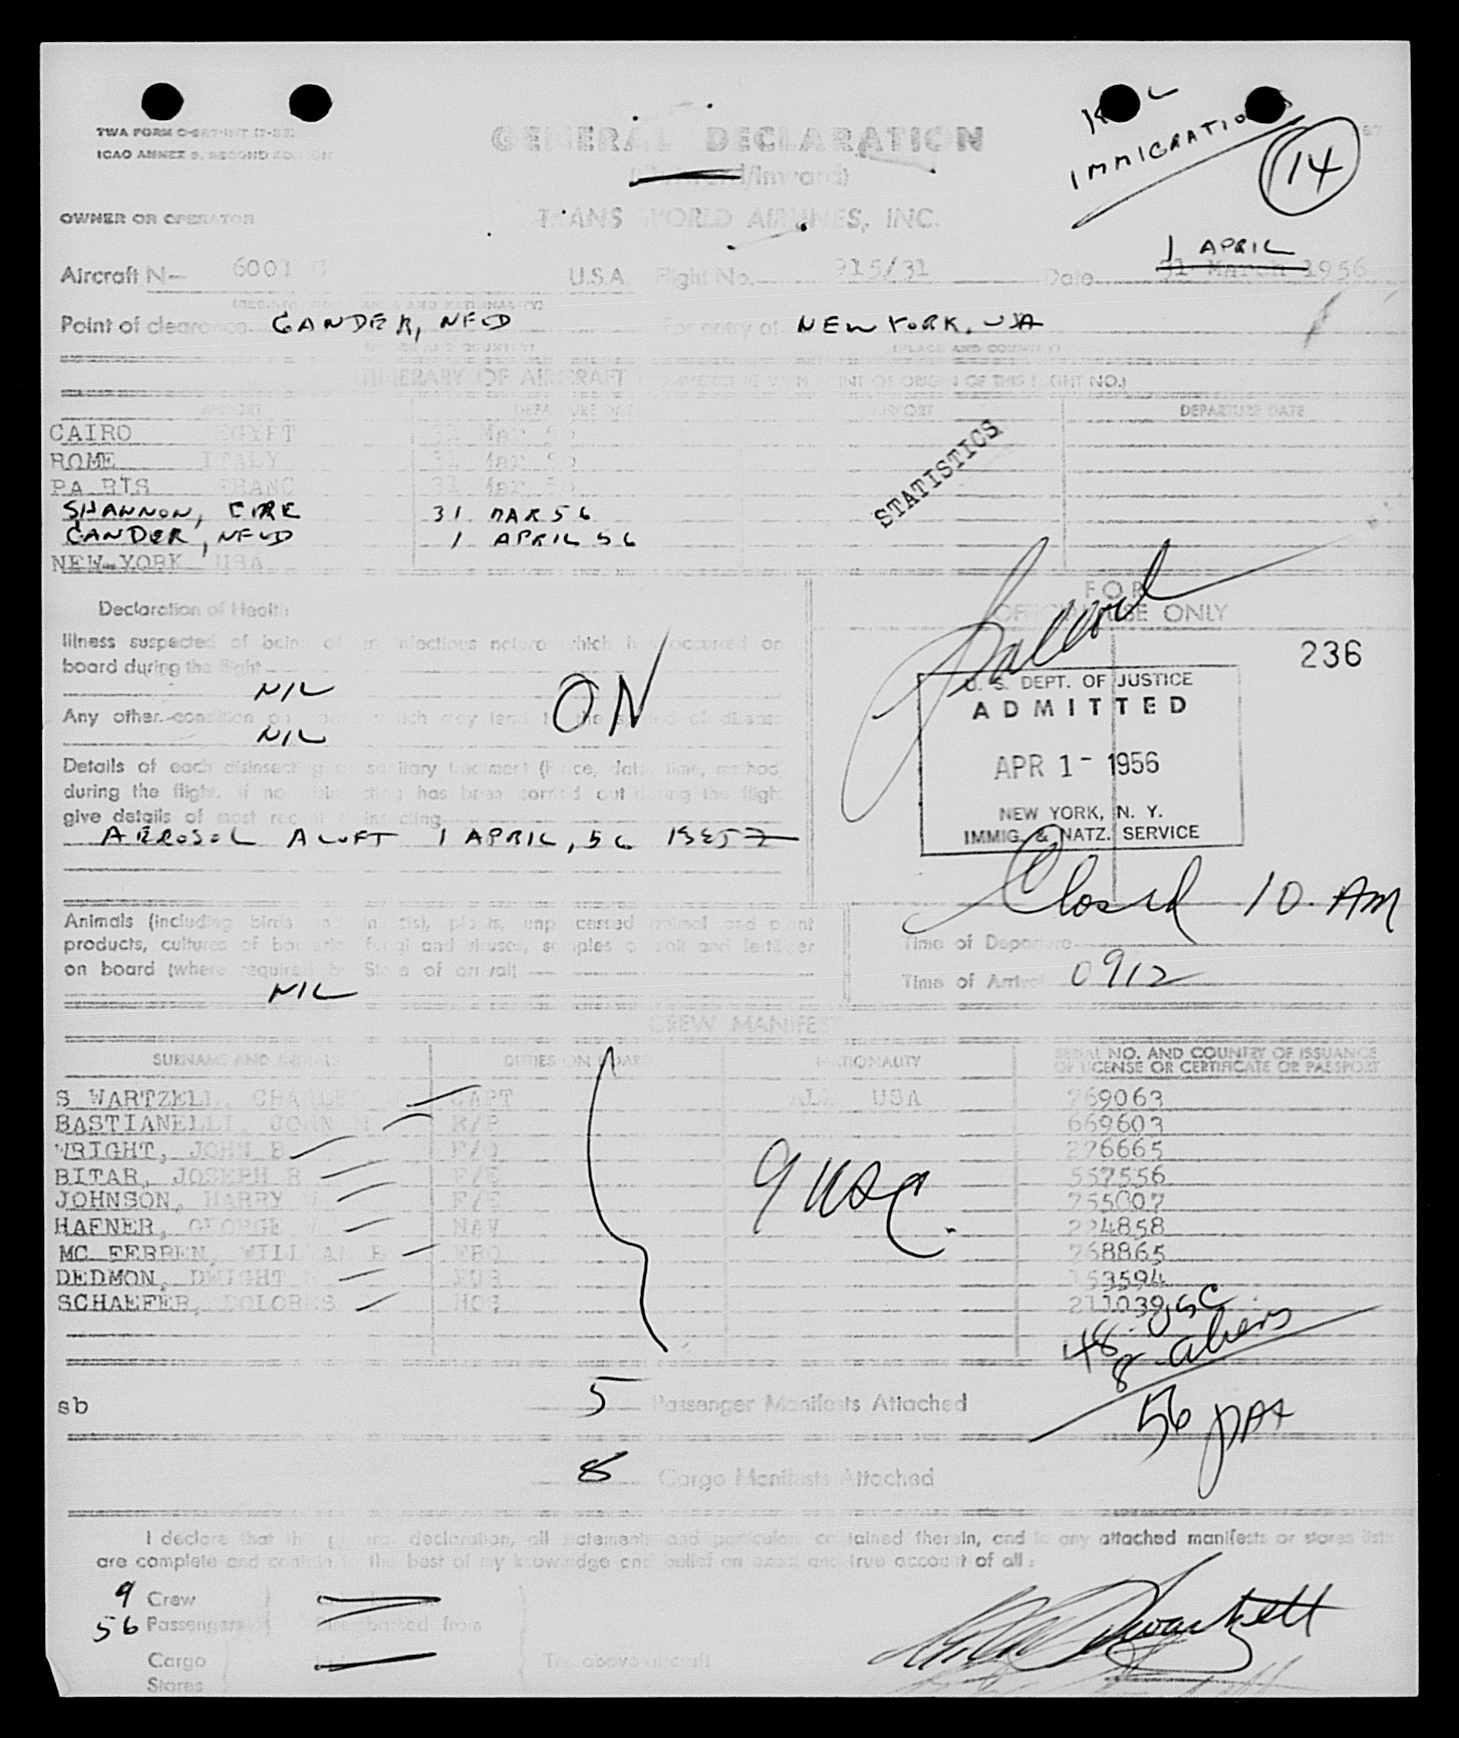 TWA FORM
ICAO ANNEX 9, SECOND EDITION
GENERAL DECLARATION
(Outward/Inward)
IMMIGRATION
14
OWNER OR OPERATOR
TRANS WORLD AIRLINES, INC.
1 APRIL
Aircraft N- 6001 U.S.A. Flight No. 915/31 Date 31 March 1956
Point of clearance GANDER, NFLD For entry at NEW YORK, USA
(PLACE AND COUNTRY)
ITINERARY OF AIRCRAFT
AIRPORT DEPARTURE DATE AIRPORT DEPARTURE DATE
CAIRO EGYPT 31 Mar 56
ROME ITALY 31 Mar 56
PARIS FRANC 31 Mar 56
STATISTICS
SHANNON, EIRE 31 MAR 56
GANDER, NFLD 1 APRIL 56
NEW YORK USA
Declaration of Health
Illness suspected of being of an infectious nature which has occurred on
board during the flight
NIL
Any other condition on board which may lead to the spread of disease
NIL
ON
Details of each disinsecting or sanitary treatment (Place, date, time, method)
during the flight. If no disinsecting has been carried out during the flight
give details of most recent disinsecting
AEROSOL ALOFT 1 APRIL, 56
FOR
OFFICIAL USE ONLY
236
U. S. DEPT. OF JUSTICE
ADMITTED
APR 1 - 1956
NEW YORK, N. Y.
IMMIG. & NATZ. SERVICE
Closed 10. AM
Animals (including birds and insects), plants, unprocessed animal and plant
products, cultures of bacteria, fungi and viruses, samples of soil and fertilizer
on board (where required by State of arrival)
NIL
Time of Departure
Time of Arrival 0912
CREW MANIFEST
SURNAME AND INITIALS DUTIES ON BOARD NATIONALITY SERIAL NO. AND COUNTRY OF ISSUANCE
OF LICENSE OR CERTIFICATE OR PASSPORT
SWARTZELL, CHARLES CAPT ALL USA 769063
BASTIANELLI, JOHN 669603
WRIGHT, JOHN B F/O 276665
BITAR, JOSEPH R F/E 557556
JOHNSON, HARRY F/E 755007
HAFNER, GEORGE NAV 224858
MC FERREN, WILLIAM 768865
DEDMON, DWIGHT PUR 153594
SCHAEFER, DOLORES HOS 211039
9 USC.
48 - USC
8 - aliens
56 pax
sb
5 Passenger Manifests Attached
8 Cargo Manifests Attached
I declare that this general declaration, all statements and particulars contained therein, and in any attached manifests or stores lists
are complete and contain to the best of my knowledge and belief an exact and true account of all:
9 Crew
56 Passengers Disembarked from
Cargo The above aircraft
Stores